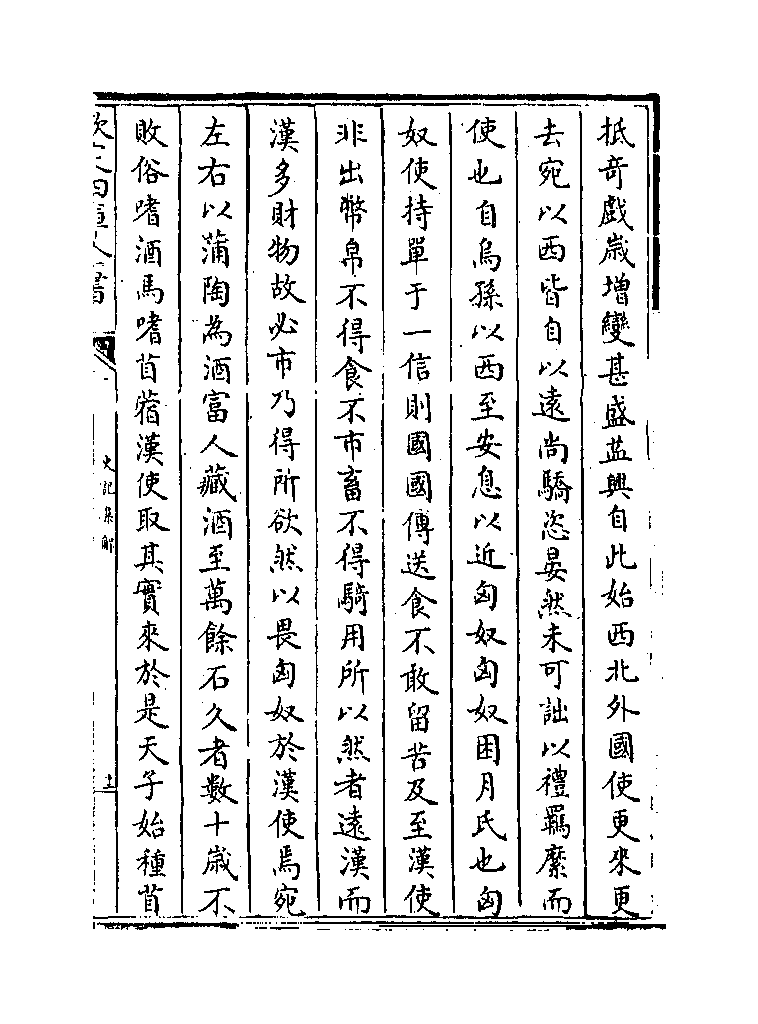 抵奇戯嵗増變甚盛益興自此始西北外國使更來更
去宛以西皆自以逺尚驕恣晏然未可詘以禮羈縻而
使也自烏孫以西至安息以近匈奴匈奴困月氏也匈
奴使持單于一信則國國傳送食不敢留苦及至漢使
非出幣帛不得食不市畜不得騎用所以然者逺漢而
漢多財物故必市乃得所欲然以畏匈奴於漢使焉宛
左右以蒲陶為酒富人藏酒至萬餘石久者數十嵗不
敗俗嗜酒馬嗜苜蓿漢使取其實來於是天子始種苜
史記集解